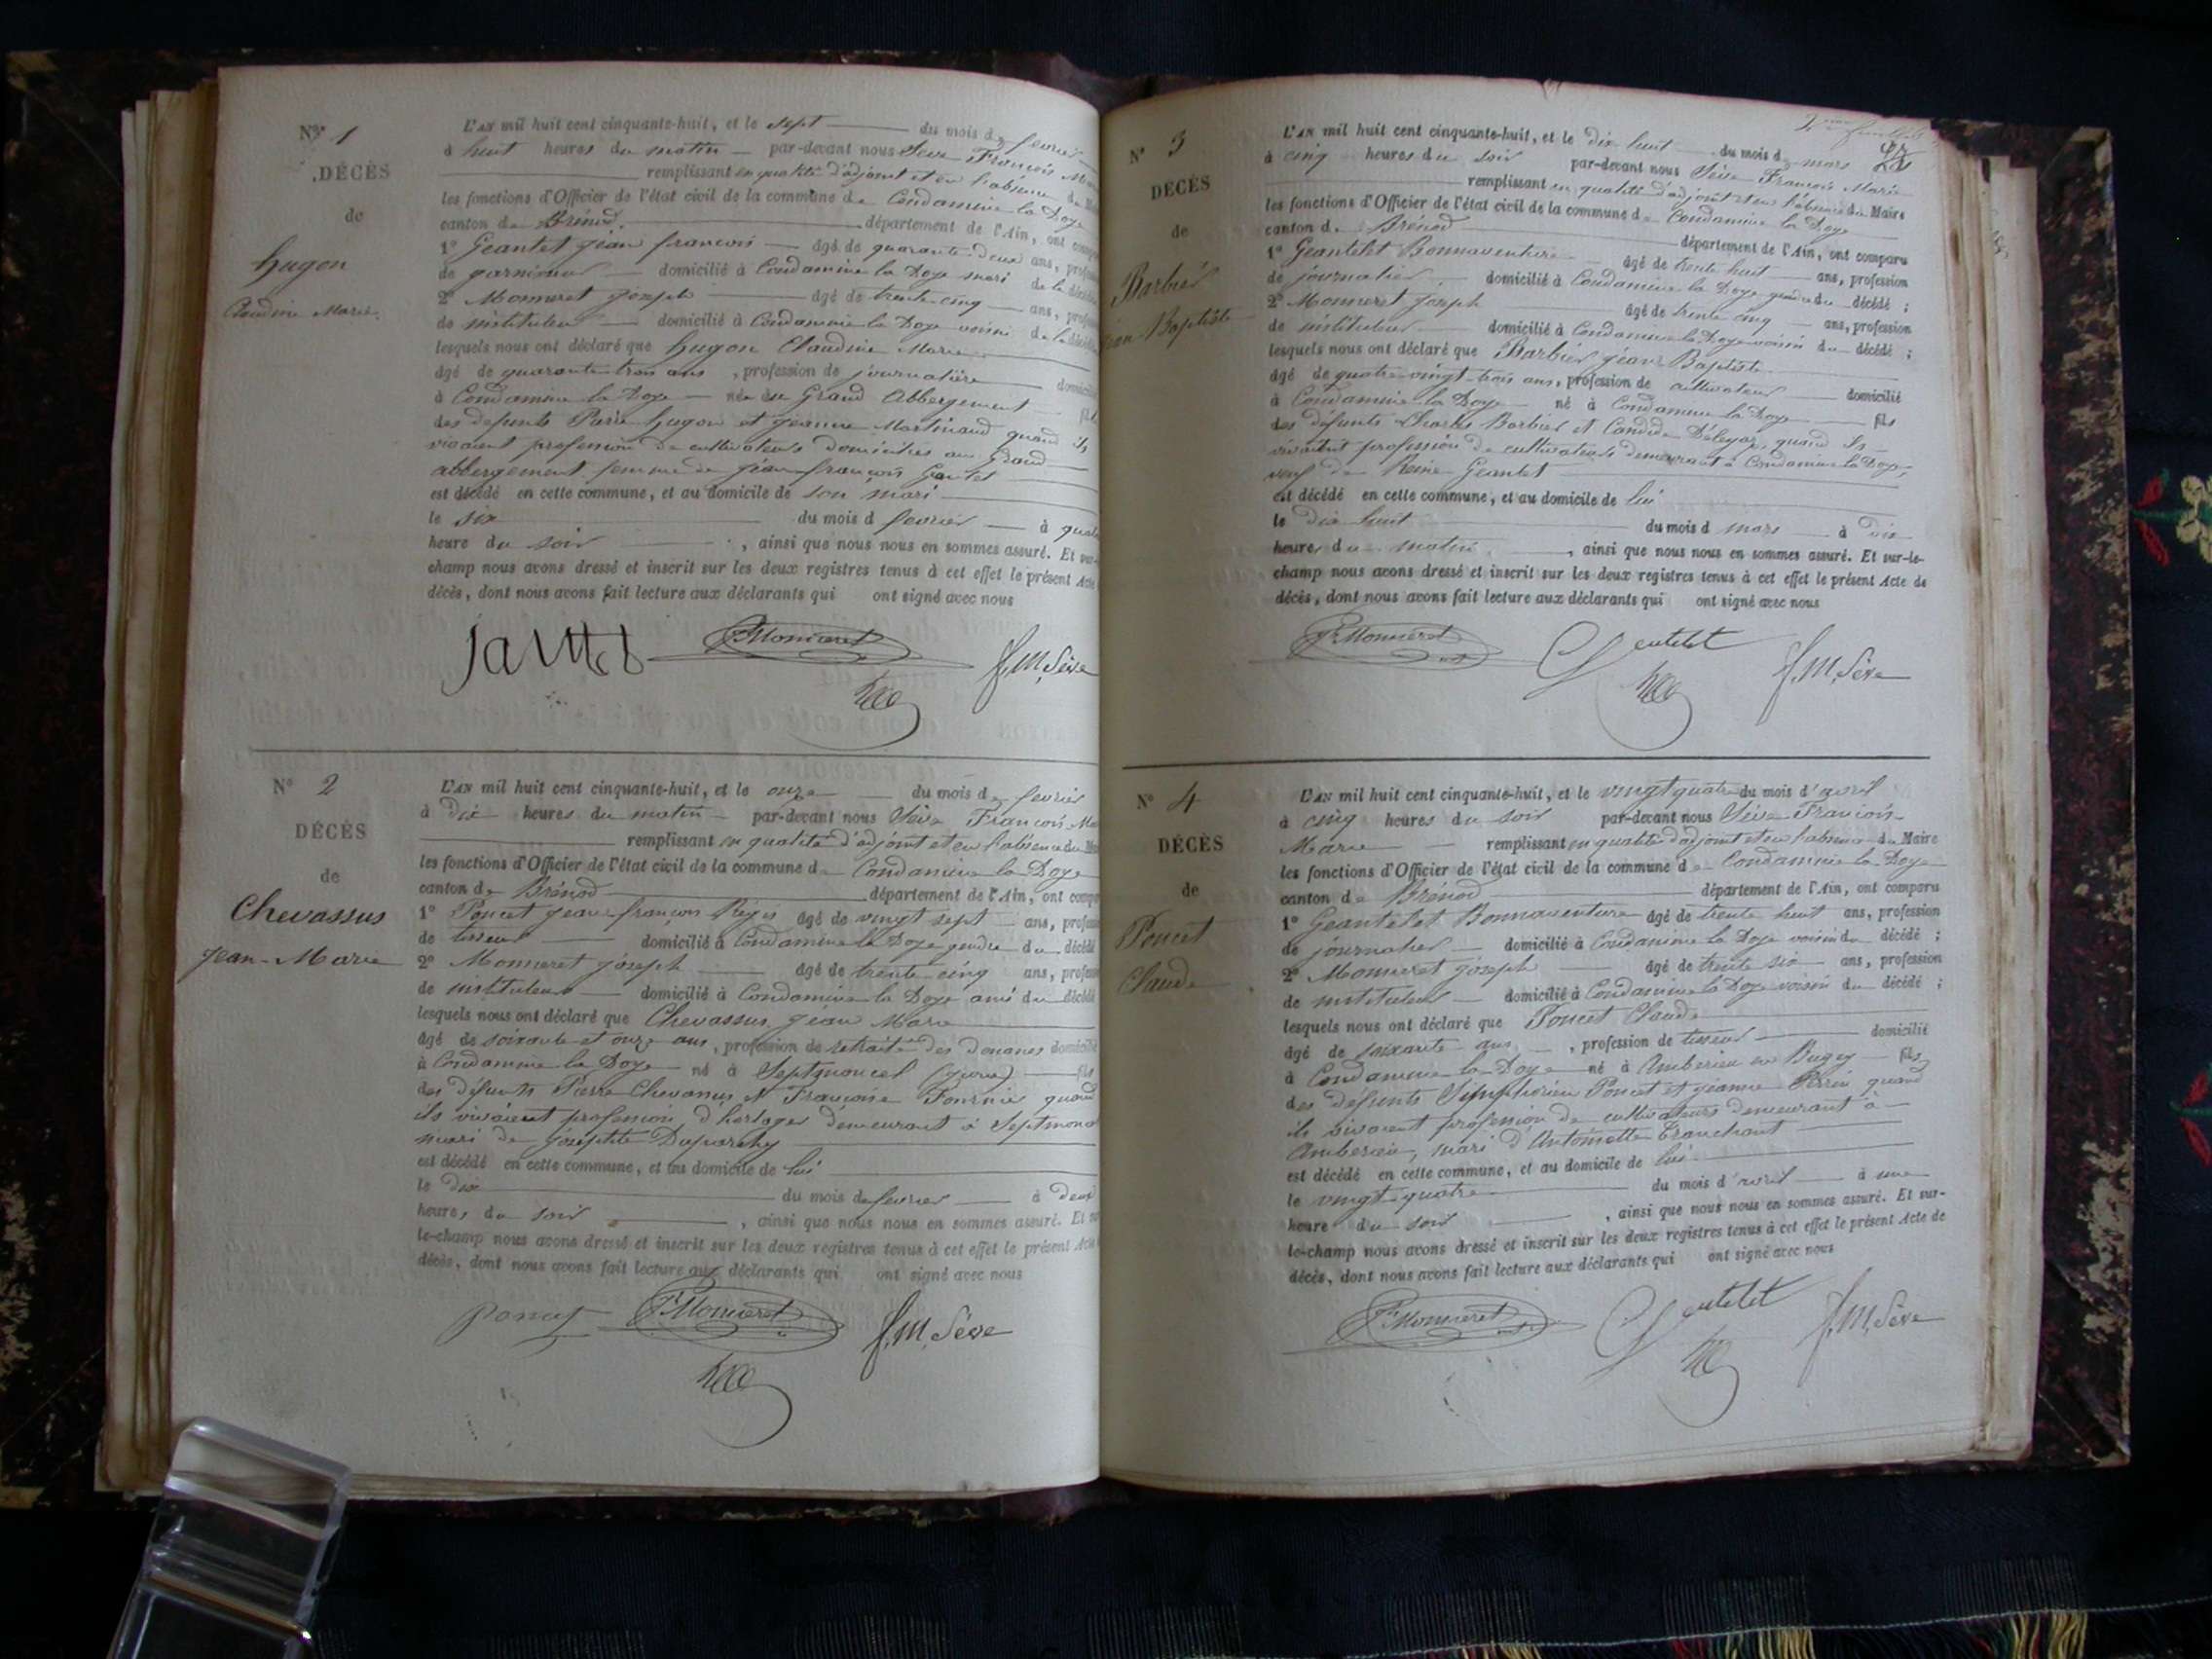 N° 1
DÉCÈS
de
Hugon
Claudine Marie.
L'AN mil huit cent cinquante-huit, et le sept du mois de fevrier
à huit heures du matin par-devant nous Sève François Marie
remplissant en qualité d'adjoint et en l'absence du
les fonctions d'Officier de l'état civil de la commune de Condamine la Doye
canton de Brénod. département de l'Ain, ont
1° Geantet jéan françois âgé de quarante deux ans,
de domicilié à Condamine la Doye mari de la
2° Monneret joseph âgé de trente-cinq ans,
de instituteur domicilié à Condamine la Doye voisin de la
lesquels nous ont déclaré que hugon Claudine Marie
âgé de quarante trois ans, profession de journalière
à Condamine la Doye née au Grand Abbergement
des defunts Pierre hugon et jéanne Martinaud quand ils
vivaient profession de cultivateurs domiciliés au Grand
abbergement femme de jéan françois Gantet
est décédé en cette commune, et au domicile de son mari
le six du mois d fevrier à
heure du soir, ainsi que nous nous en sommes assuré. Et sur-
champ nous avons dressé et inscrit sur les deux registres tenus à cet effet le présent Acte
décès, dont nous avons fait lecture aux déclarants qui ont signé avec nous
Monneret F. M. Sève
N° 2
DÉCÈS
de
Chevassus
Jean-Marie
L'AN mil huit cent cinquante-huit, et le onze du mois de fevrier
à dix heures du matin par-devant nous Sève François
remplissant en qualité d'adjoint et en l'absence du
les fonctions d'Officier de l'état civil de la commune d Condamine la Doye
canton de Brénod département de l'Ain, ont
1° Poncet jean françois Régis âgé de vingt sept ans,
de tisseur domicilié à Condamine la Doye gendre du décédé
2° Monneret joseph âgé de trente-cinq ans,
de instituteur domicilié à Condamine la Doye ami du décédé
lesquels nous ont déclaré que Chevassus jean Marie
âgé de soixante et onze ans, profession de retraité des Douanes domicilié
à Condamine la Doye né à Septmoncel (jura) fils
des défunts Pierre Chevassus et Françoise Fournier quand
ils vivaient profession d'horloger demeurant à
mari de
est décédé en cette commune, et au domicile de lui
le dix du mois de fevrier à deux
heures du soir, ainsi que nous nous en sommes assuré. Et
le-champ nous avons dressé et inscrit sur les deux registres tenus à cet effet le présent Acte
décès, dont nous avons fait lecture aux déclarants qui ont signé avec nous
Poncet Monneret F. M. Sève
2ème feuillet
N° 3
DÉCÈS
de
Barbier
Baptiste
L'AN mil huit cent cinquante-huit, et le dix huit du mois d mars
à cinq heures du soir par-devant nous Sève François Marie
remplissant en qualité d'adjoint et en l'absence du Maire
les fonctions d'Officier de l'état civil de la commune d Condamine la Doye
canton d Brénod département de l'Ain, ont comparu
1° Geantelet Bonnaventure âgé de trente huit ans, profession
de journalier domicilié à Condamine la Doye gendre du décédé ;
2° Monneret joseph âgé de trente cinq ans, profession
de instituteur domicilié à Condamine la Doye voisin du décédé ;
lesquels nous ont déclaré que Barbier jean Baptiste
âgé de quatre-vingt-trois ans, profession de cultivateur domicilié
à Condamine la Doye né à Condamine la Doye fils
des défunts Charles Barbier et Candide quand ils
vivaient profession de cultivateurs demeurant à Condamine la Doye,
veuf de Reine Geantet
est décédé en cette commune, et au domicile de lui
le dix huit du mois d mars à dix
heures du matin, ainsi que nous nous en sommes assuré. Et sur-le-
champ nous avons dressé et inscrit sur les deux registres tenus à cet effet le présent Acte de
décès, dont nous avons fait lecture aux déclarants qui ont signé avec nous
Monneret F. M. Sève
N° 4
DÉCÈS
de
Poncet
Claude
L'AN mil huit cent cinquante-huit, et le vingt quatre du mois d'avril
à cinq heures du soir par-devant nous Sève François
Marie remplissant en qualité d'adjoint et en l'absence du Maire
les fonctions d'Officier de l'état civil de la commune de Condamine la Doye
canton de Brénod département de l'Ain, ont comparu
1° Geantelet Bonnaventure âgé de trente huit ans, profession
de journalier domicilié à Condamine la Doye voisin du décédé ;
2° Monneret joseph âgé de trente six ans, profession
de instituteur domicilié à Condamine la Doye voisin du décédé ;
lesquels nous ont déclaré que Poncet Claude
âgé de soixante ans, profession de tisseur domicilié
à Condamine la Doye né à Amberieu en Bugey fils
des defunts Simphorien Poncet et jéanne Perrin quand
ils vivaient profession de cultivateurs demeurant à
Amberieu, mari d'Antoinette Tranchant
est décédé en cette commune, et au domicile de lui
le vingt quatre du mois d'avril à une
heure du soir, ainsi que nous nous en sommes assuré. Et sur-
le-champ nous avons dressé et inscrit sur les deux registres tenus à cet effet le présent Acte de
décès, dont nous avons fait lecture aux déclarants qui ont signé avec nous
Monneret F. M. Sève